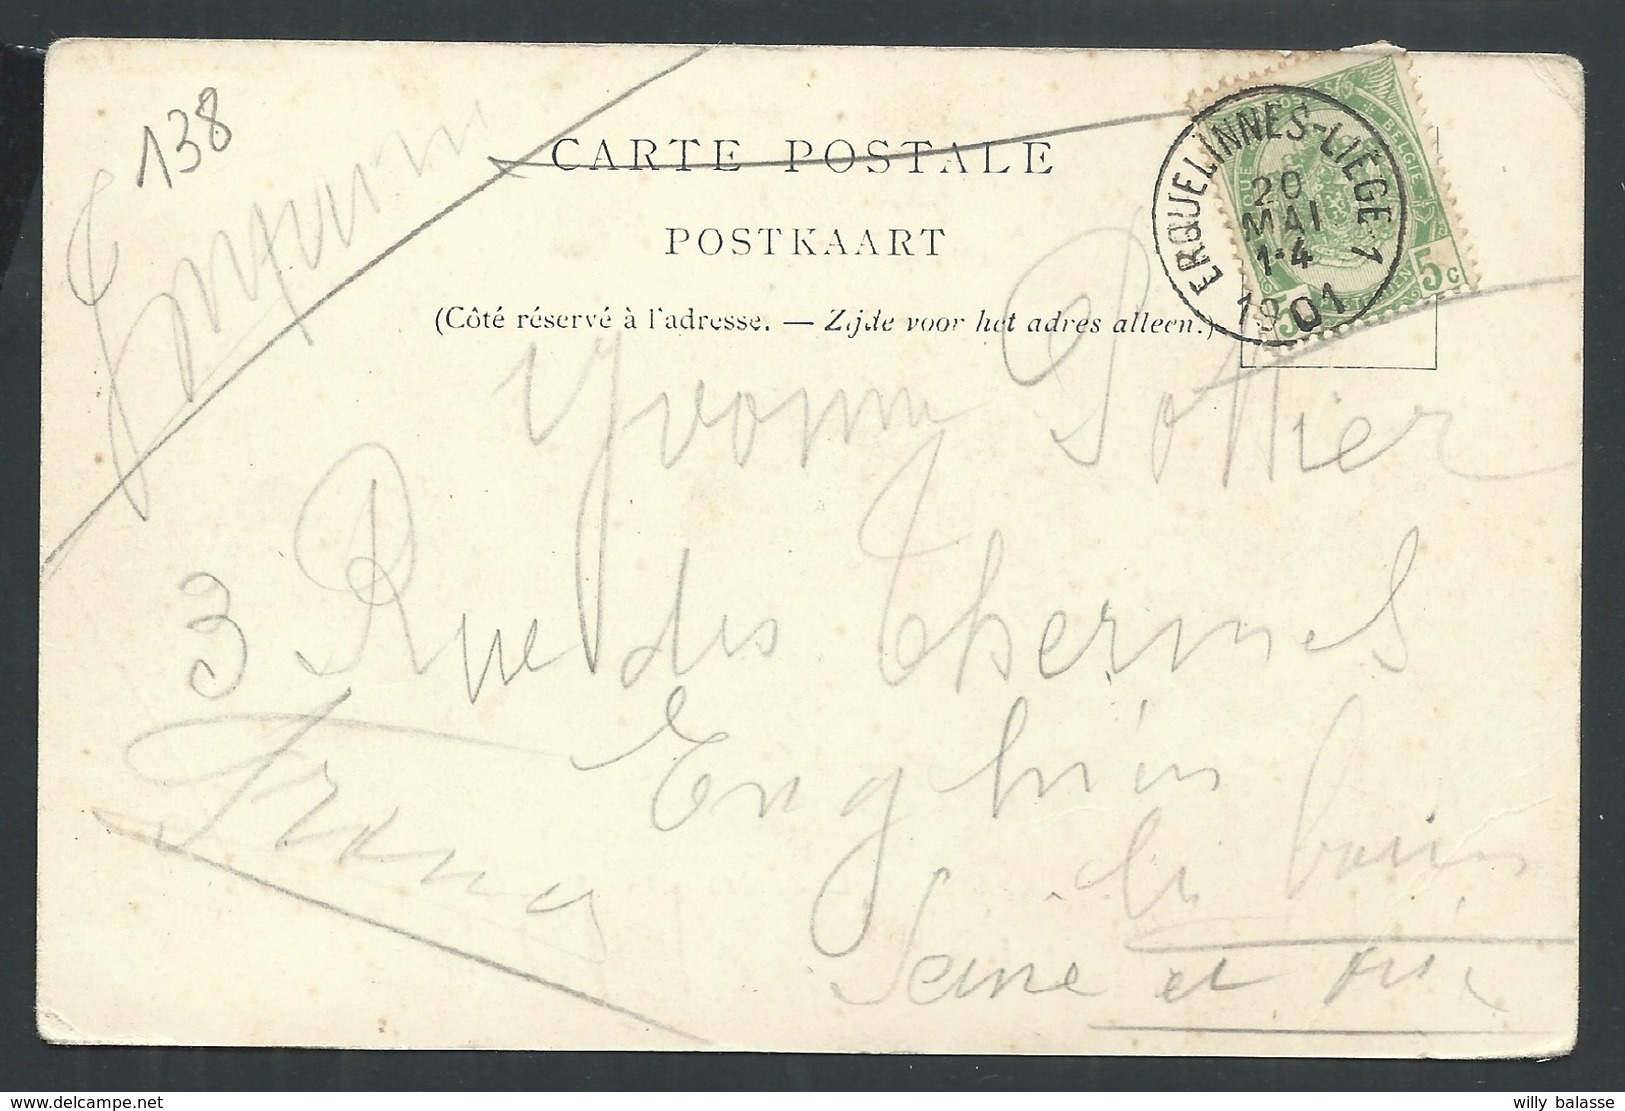 138
Imprimé
CARTE POSTALE
POSTKAART
(Côté réservé à l'adresse. — Zijde voor het adres alleen.)
ERQUELINNES-LIÉGE 1
20
MAI
1-4
1901
BELGIE
5c
Yvonne Pottier
3 Rue des Thermes
Enghien
les bains
Seine et Oise
France
delcampe.net
willy balasse